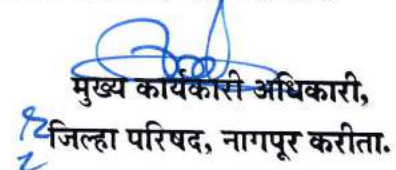 मुख्य कार्यकारी अधिकारी,
जिल्हा परिषद, नागपूर करीता.